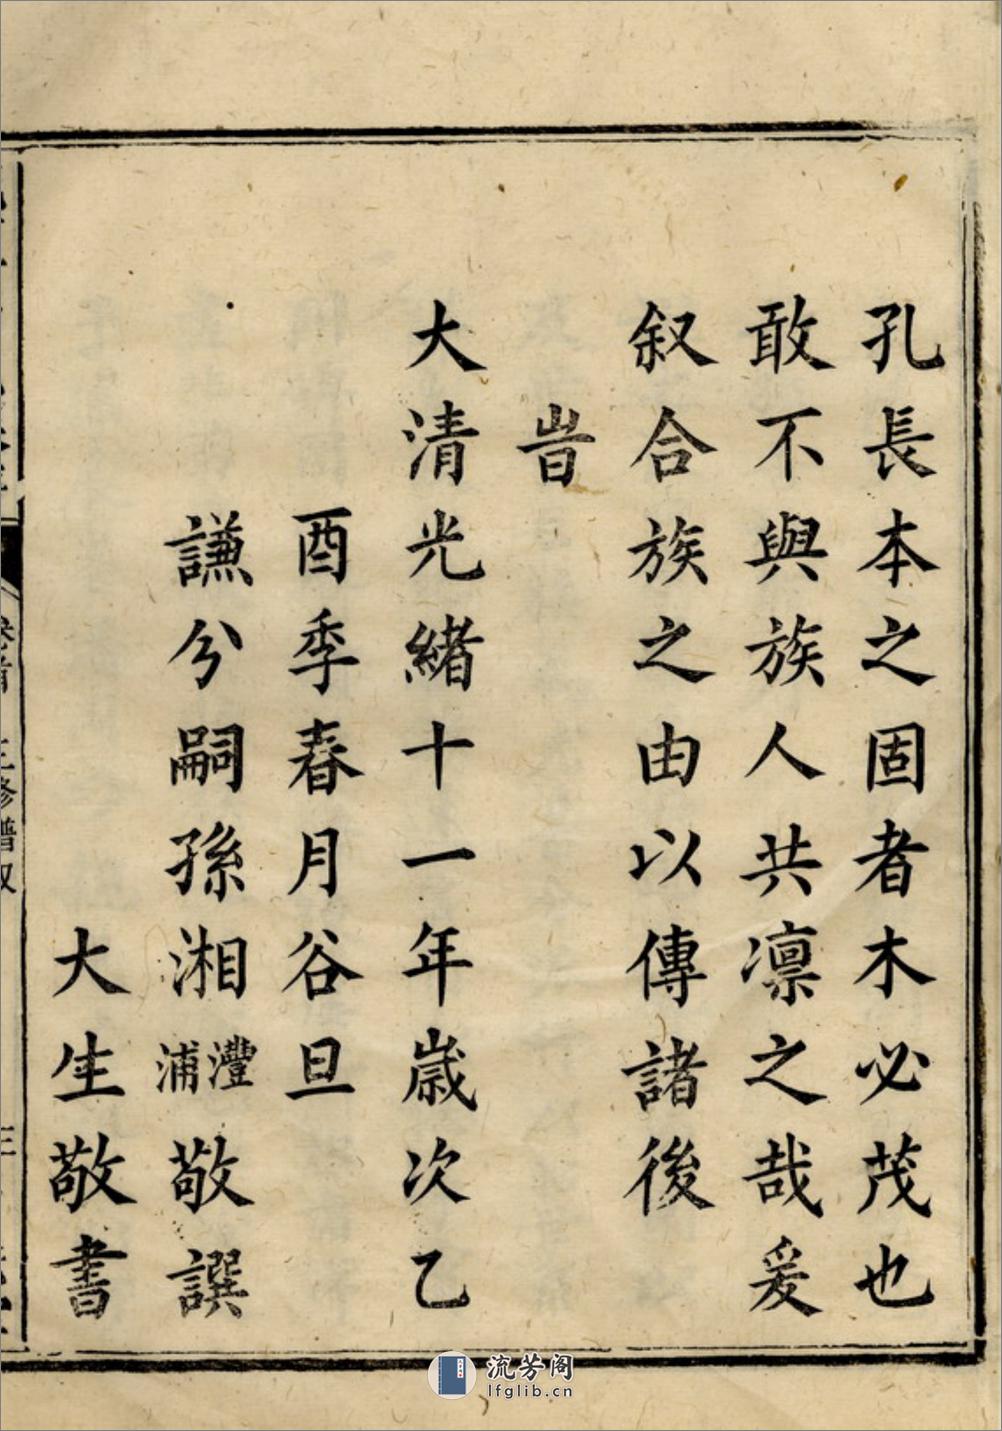 孔長本之固者木必茂也
敢不與族人共凛之哉爰
叙合族之由以傳諸後
旹
大清光緒十一年歲次乙
酉季春月谷旦
謙兮嗣孫湘灃浦敬譔
大生敬書
卷首 三修譜叙 三
流芳阁
lfglib.cn